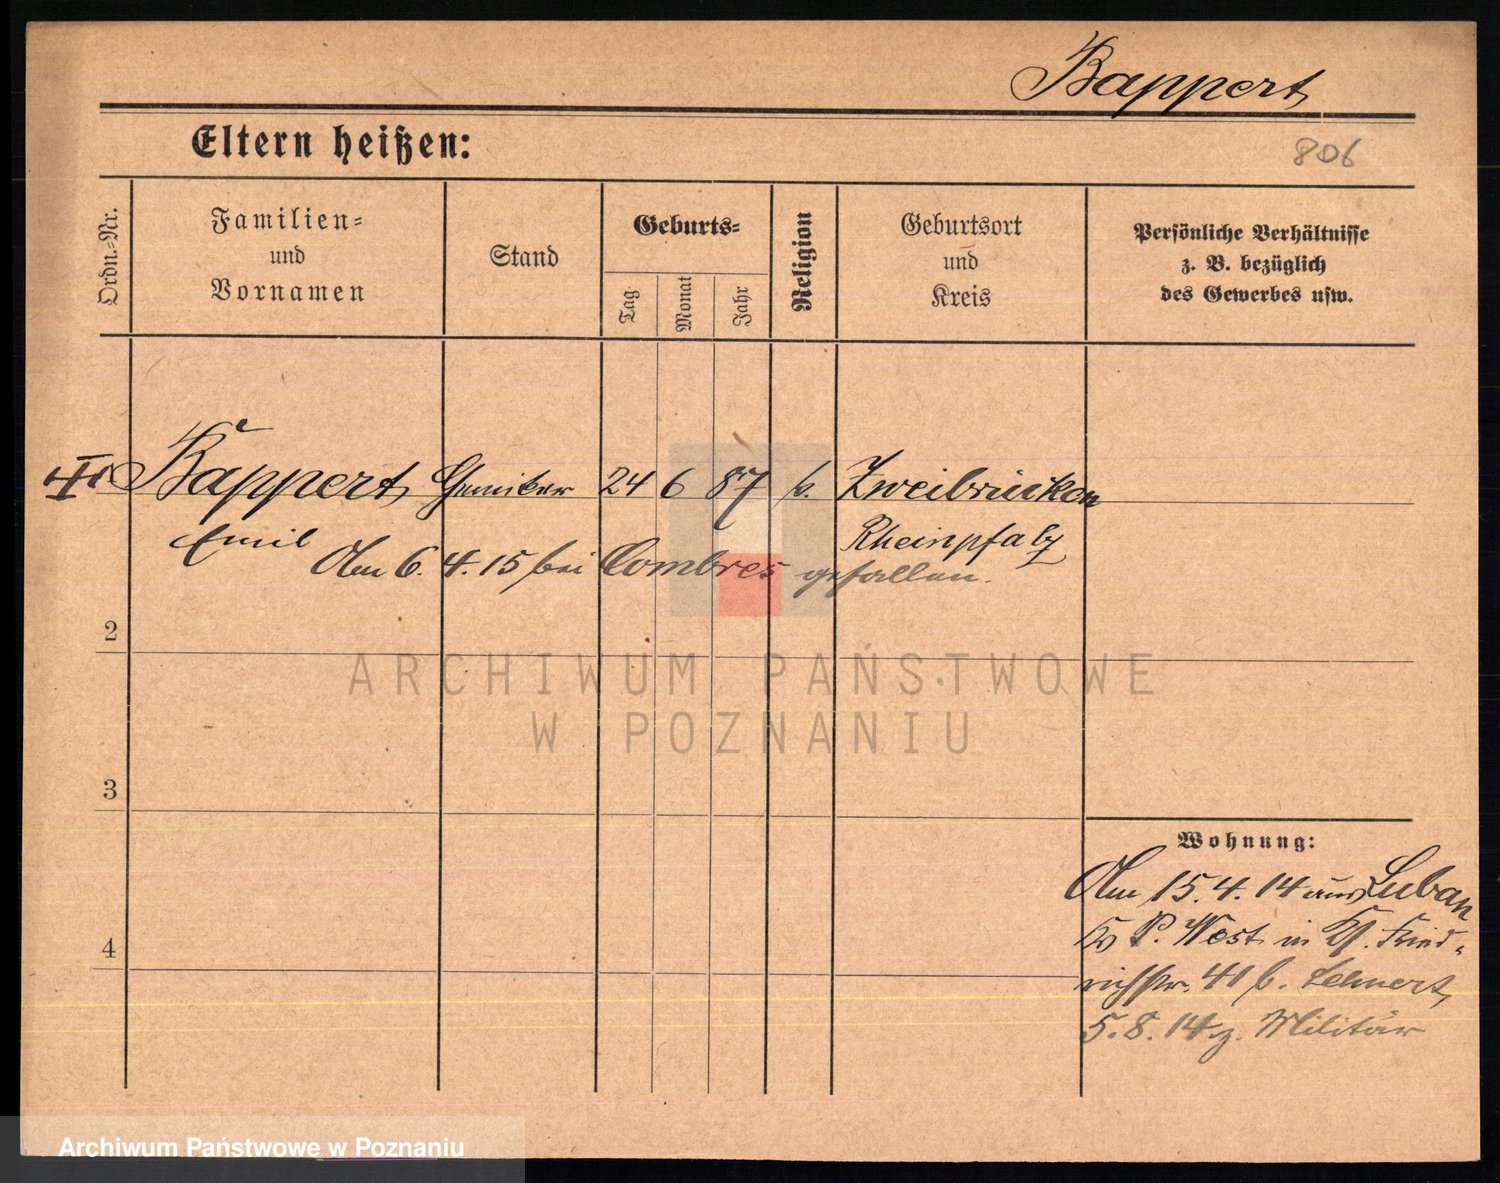 Bappert
Eltern heißen:
806
Ordn.-Nr.
Familien-
und
Vornamen
Stand
Geburts-
Tag
Monat
Jahr
Religion
Geburtsort
und
Kreis
Persönliche Verhältnisse
z. B. bezüglich
des Gewerbes usw.
Bappert Chemiker 24 6 87 k. Zweibrücken
Emil Rheinpfalz
Am 6. 4. 15 bei Combres gefallen.
2
ARCHIWUM PAŃSTWOWE
W POZNANIU
3
Wohnung:
Am 15. 4. 14 aus Luban
P. West in Fried-
richstr. 41 b. Lehnert,
4
5. 8. 14 z. Militär
Archiwum Państwowe w Poznaniu